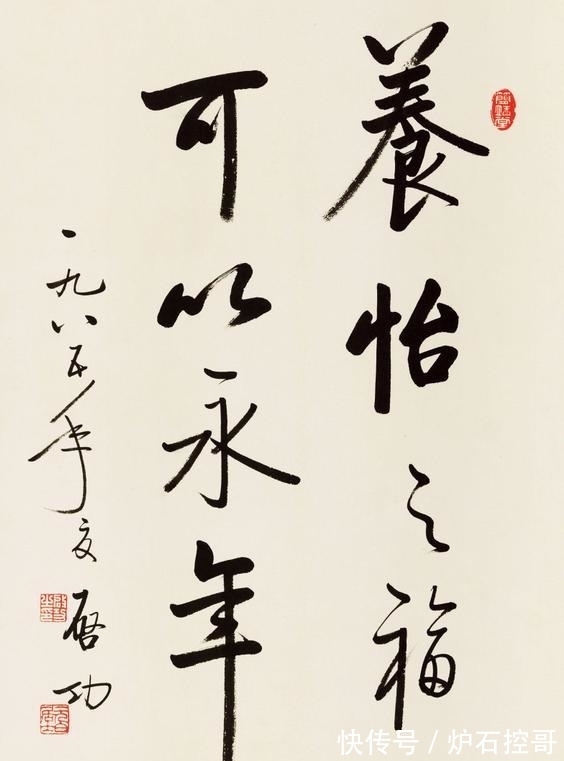 養怡之福
可以永年
一九八五年夏
啓功
快传号/炉石控哥